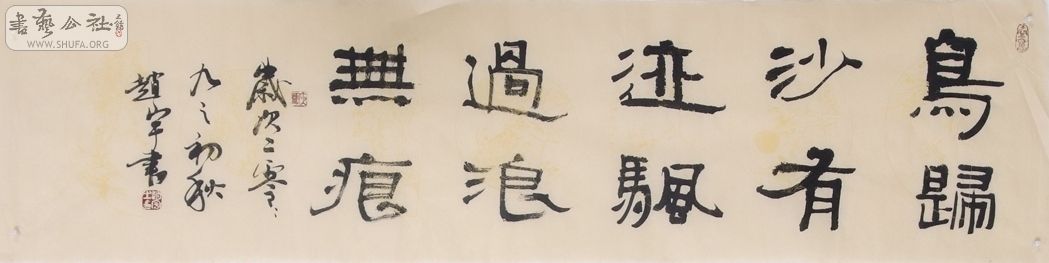 鳥歸
沙有
迹颿
過浪
無痕
歲次二零〻
九之初秋
趙宇書
書藝公社
WWW.SHUFA.ORG